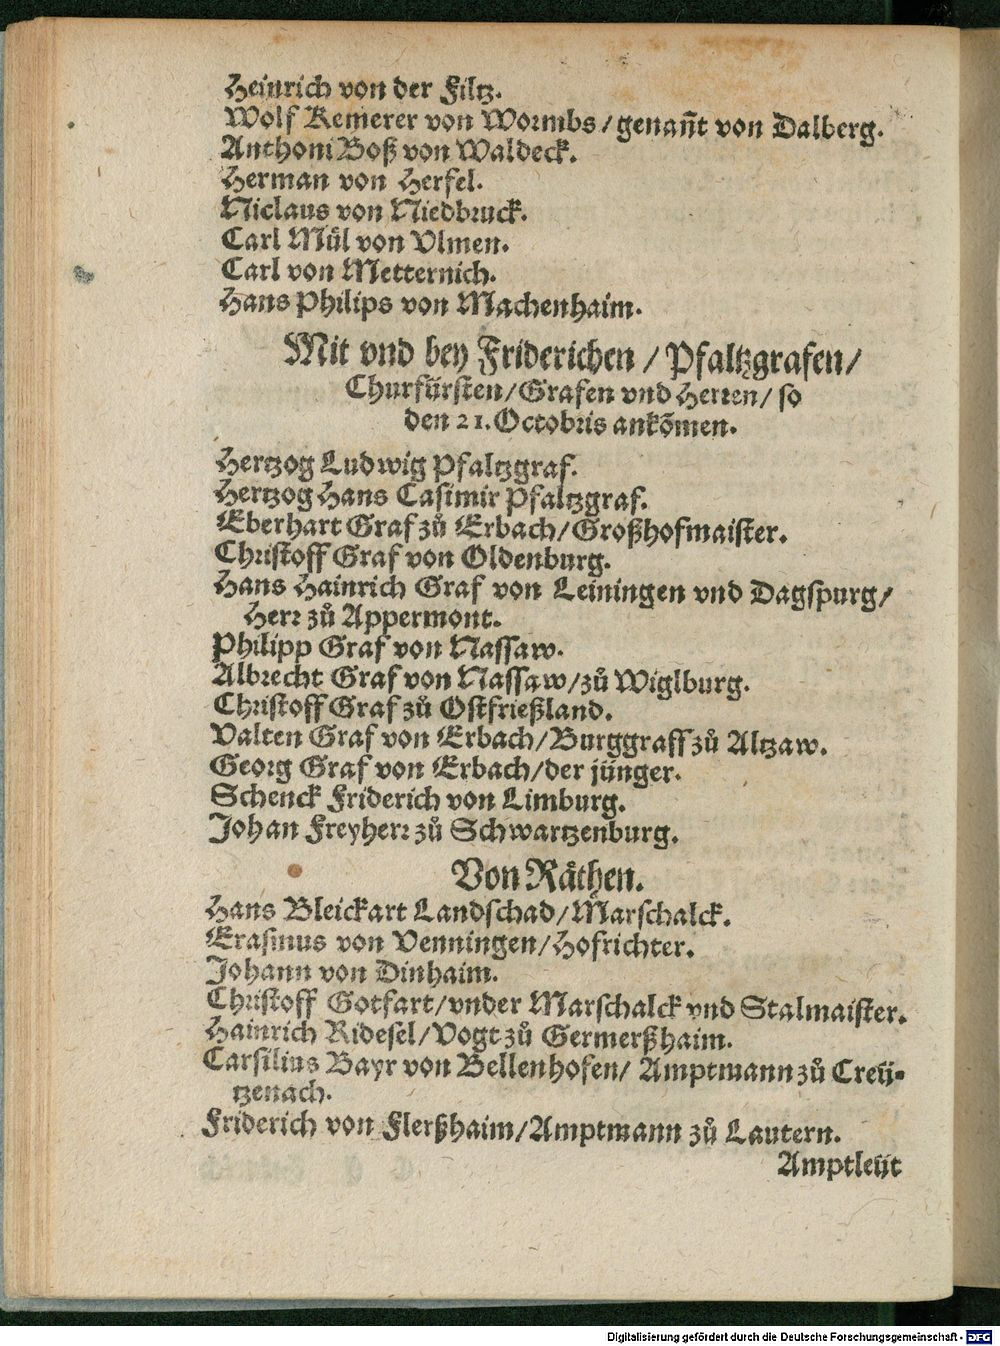 Heinrich von der Filtz.
Wolf Kemerer von Wormbs / genañt von Dalberg.
Anthoni Boß von Waldeck.
Herman von Herfel.
Niclaus von Niedbruck.
Carl Muͤl von Vlmen.
Carl von Metternich.
Hans Philips von Machenhaim.
Mit vnd bey Friderichen / Pfaltzgrafen /
Churfuͤrsten / Grafen vnd Herren / so
den 21. Octobris ankõmen.
Hertzog Ludwig Pfaltzgraf.
Hertzog Hans Casimir Pfaltzgraf.
Eberhart Graf zů Erbach / Großhofmaister.
Christoff Graf von Oldenburg.
Hans Hainrich Graf von Leiningen vnd Dagspurg /
Herr zů Appermont.
Philipp Graf von Nassaw.
Albrecht Graf von Nassaw / zů Wiglburg.
Christoff Graf zů Ostfrießland.
Valten Graf von Erbach / Burggraff zů Altzaw.
Georg Graf von Erbach / der jünger.
Schenck Friderich von Limburg.
Johan Freyherr zů Schwartzenburg.
Von Raͤthen.
Hans Bleickart Landschad / Marschalck.
Erasmus von Venningen / Hofrichter.
Johann von Dinhaim.
Christoff Gotfart / vnder Marschalck vnd Stalmaister.
Hainrich Ridesel / Vogt zů Germerßhaim.
Carsilius Bayr von Bellenhofen / Amptmann zů Creü-
tzenach.
Friderich von Flerßhaim / Amptmann zů Lautern.
Amptleüt
Digitalisierung gefördert durch die Deutsche Forschungsgemeinschaft - DFG